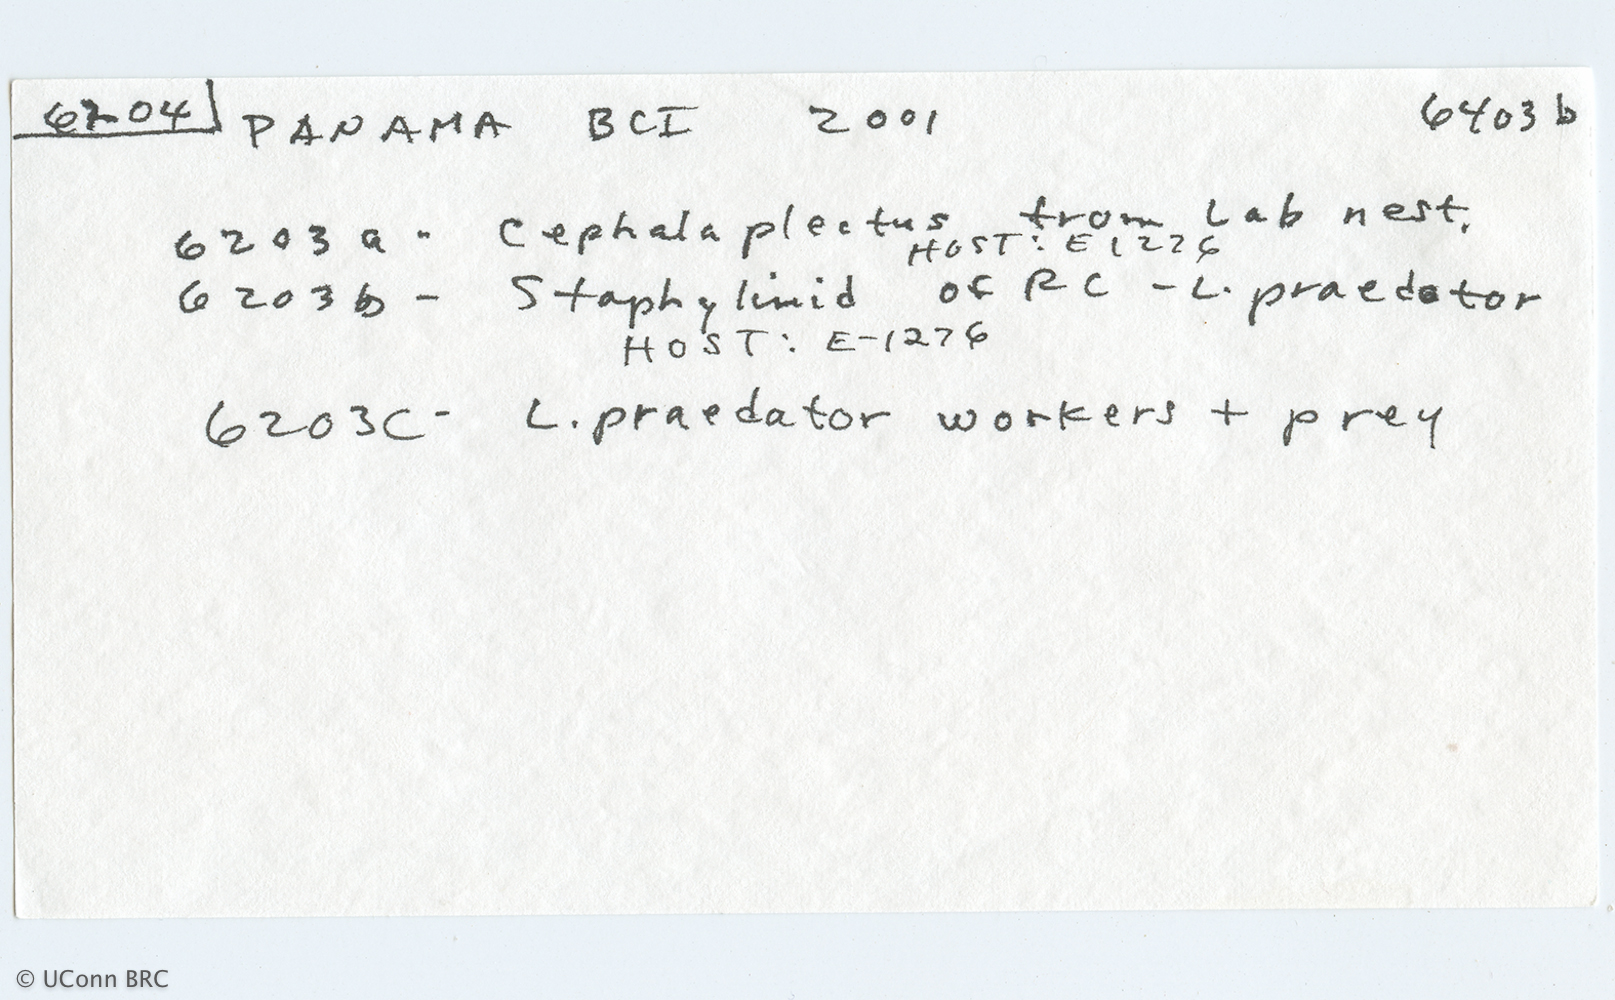 6204 PANAMA BCI 2001 6403b
6203a - Cephalaplectus from Lab nest.
HOST: E1226
6203b - Staphylinid of RC - L. praedator
HOST: E-1276
6203C - L. praedator workers + prey
© UConn BRC